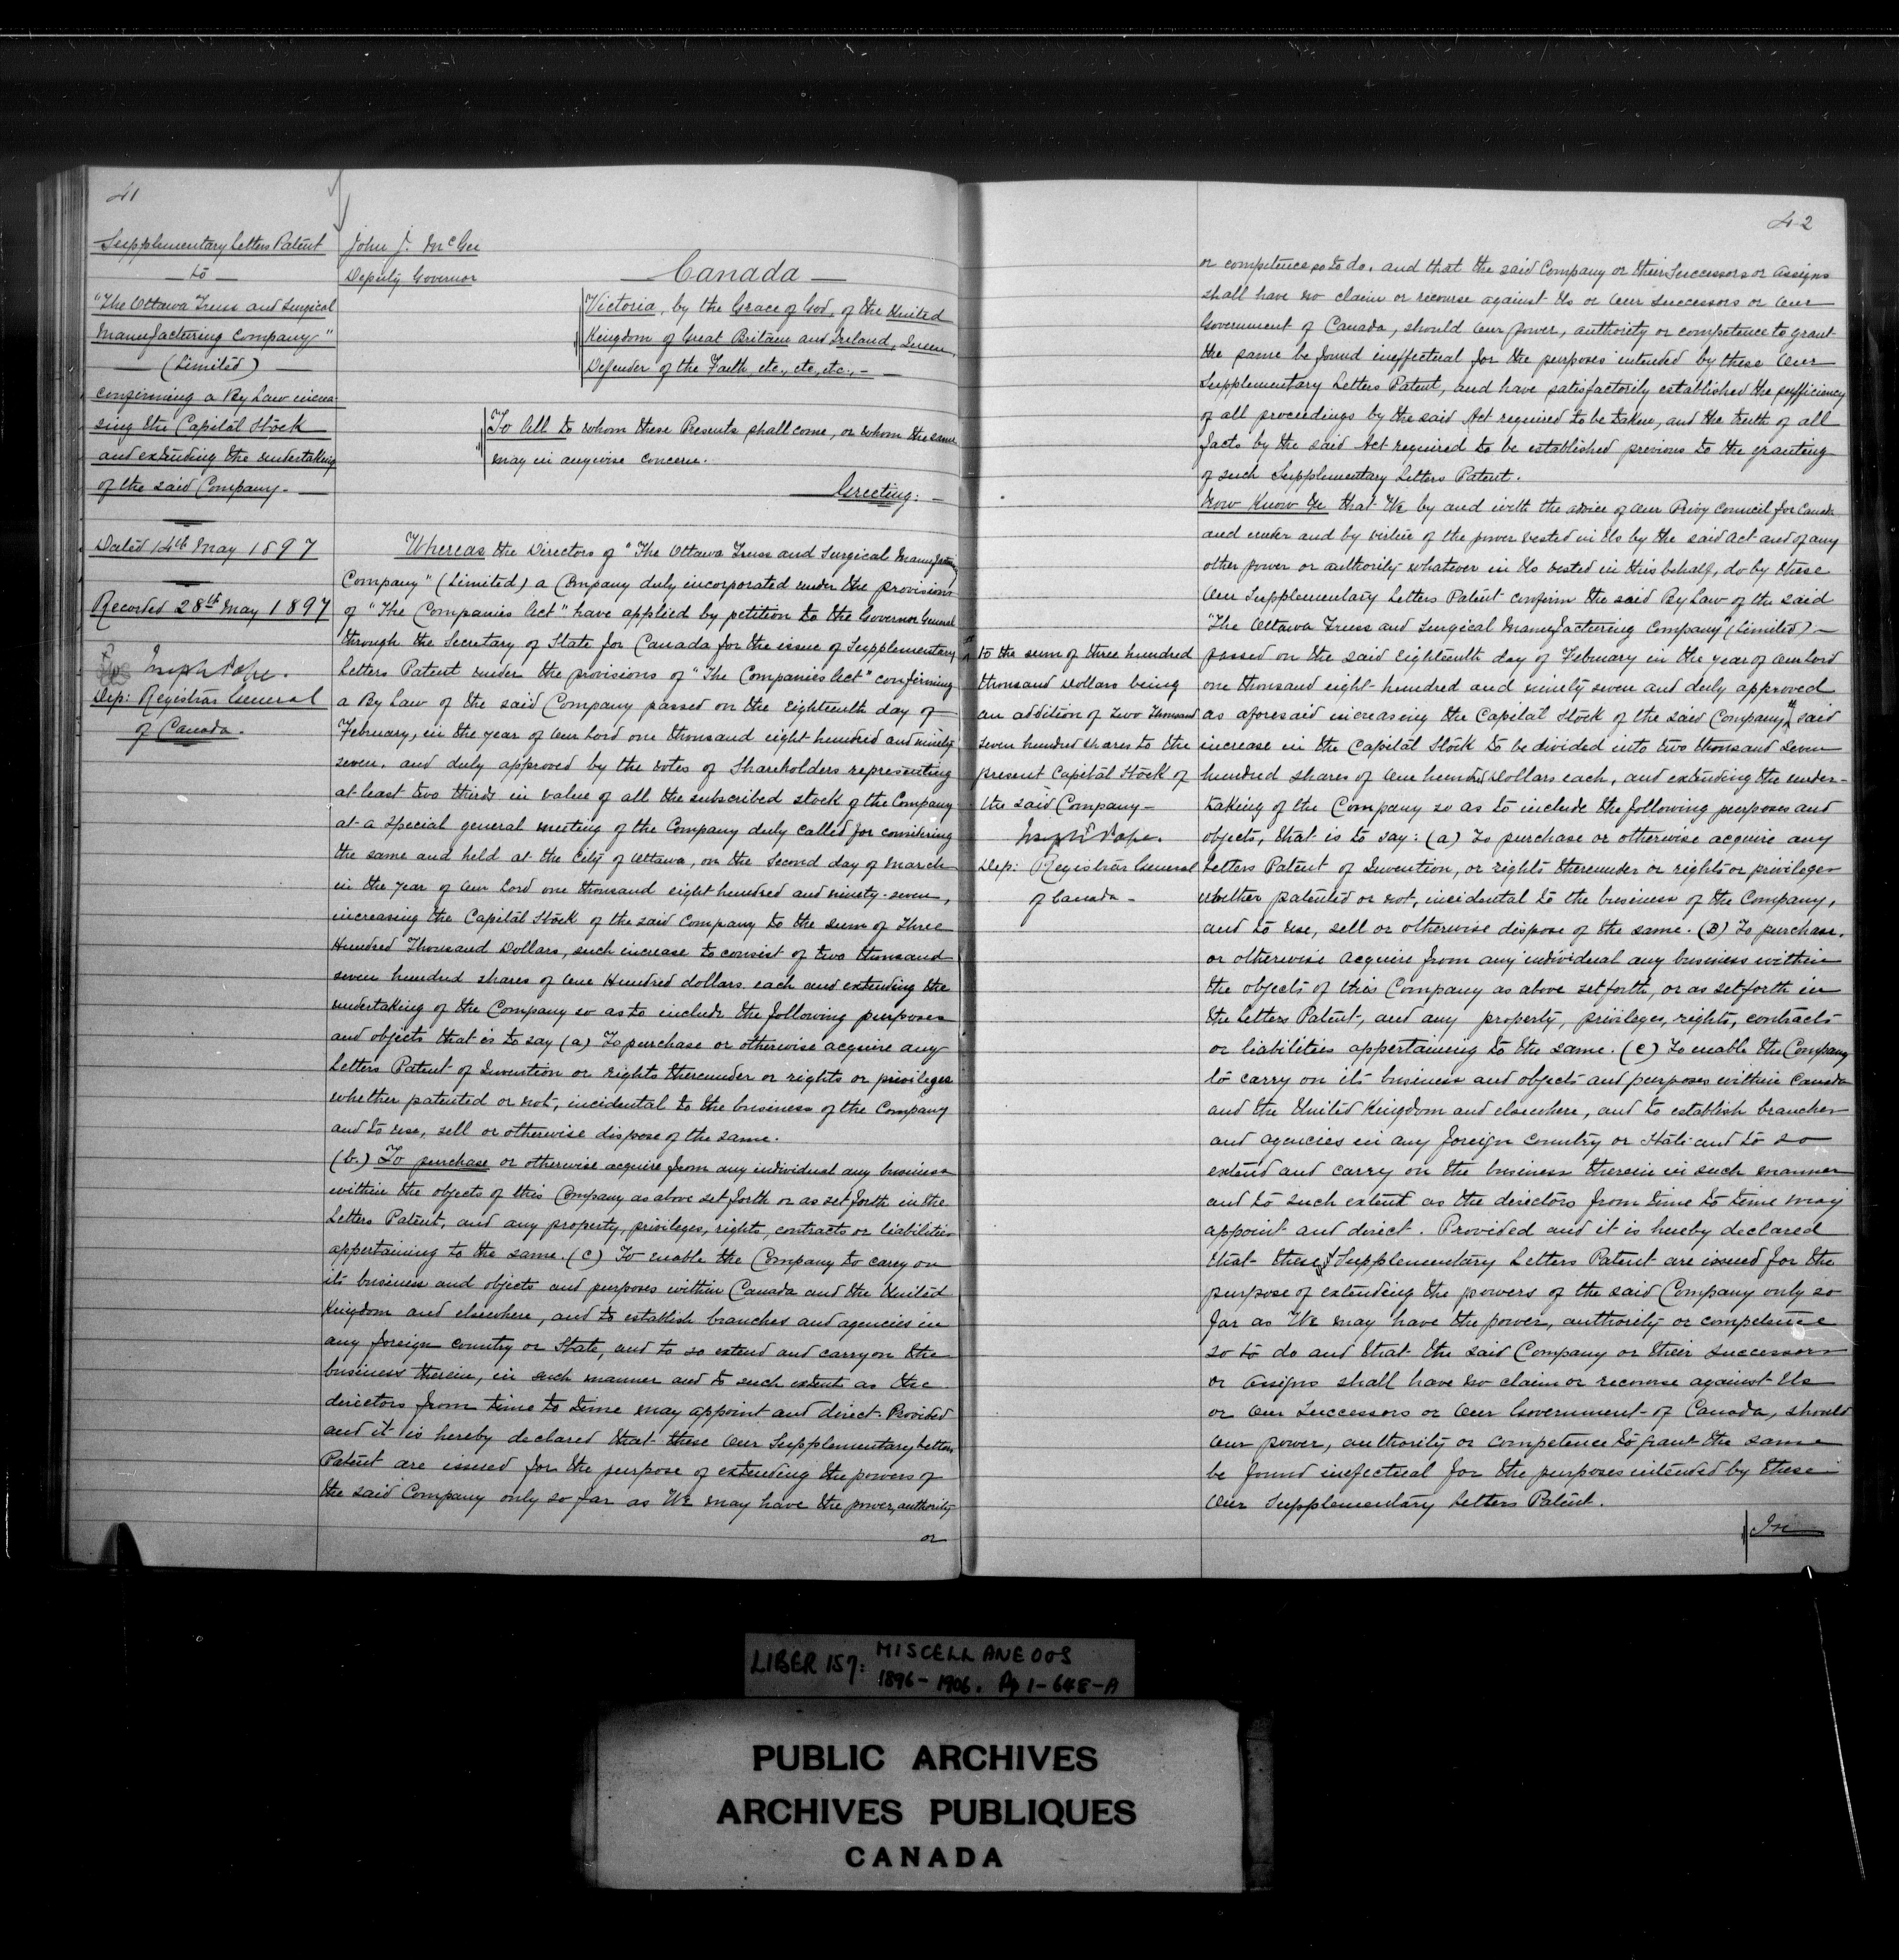 41
Supplementary Letters Patent
to
"The Ottawa Truss and Surgical
Manufacturing Company"
(Limited)
confirming a By Law increa-
sing the Capital Stock
and extending the undertaking
of the said Company.
Dated 14th May 1897
Recorded 28th May 1897
Joseph Pope.
Dep: Registrar General
of Canada.
John J. McGee
Deputy Governor
Canada
Victoria, by the Grace of God, of the United
Kingdom of Great Britain and Ireland, Queen,
Defender of the Faith, etc., etc., etc.,
To All to whom these Presents shall come, or whom the same
may in anywise concern.
Greeting:
Whereas the Directors of "The Ottawa Truss and Surgical Manufacturing
Company" (Limited) a Company duly incorporated under the provisions
of "The Companies Act" have applied by petition to the Governor General
through the Secretary of State for Canada for the issue of Supplementary
Letters Patent under the provisions of "The Companies Act" confirming
a By Law of the said Company passed on the Eighteenth day of
February, in the year of Our Lord one thousand eight hundred and ninety
seven. and duly approved by the votes of Shareholders representing
at least two thirds in value of all the subscribed stock of the Company
at a Special general meeting of the Company duly called for considering
the same and held at the City of Ottawa, on the Second day of March
in the year of Our Lord one thousand eight hundred and ninety-seven,
increasing the Capital Stock of the said Company to the sum of Three
Hundred Thousand Dollars, such increase to consist of two thousand
seven hundred shares of One Hundred dollars each and extending the
undertaking of the Company so as to include the following purposes
and objects that is to say (a) To purchase or otherwise acquire any
Letters Patent of Invention or rights thereunder or rights or privileges
whether patented or not, incidental to the business of the Company
and to use, sell or otherwise dispose of the same.
(b.) To purchase or otherwise acquire from any individual any business
within the objects of this Company as above set forth or as set forth in the
Letters Patent, and any property, privileges, rights, contracts or liabilities
appertaining to the same. (c) To enable the Company to carry on
its business and objects and purposes within Canada and the United
Kingdom and elsewhere, and to establish branches and agencies in
any foreign country or State, and to so extend and carry on the
business therein, in such manner and to such extent as the
directors from time to time may appoint and direct. Provided
and it is hereby declared that these Our Supplementary Letters
Patent are issued for the purpose of extending the powers of
the said Company only so far as We may have the power, authority
or
42
or competence so to do. and that the said Company or their Successors or Assigns
shall have no claim or recourse against Us or Our Successors or Our
Government of Canada, should Our power, authority or competence to grant
the same be found ineffectual for the purposes intended by these Our
Supplementary Letters Patent, and have satisfactorily established the sufficiency
of all proceedings by the said Act required to be taken, and the truth of all
facts by the said Act required to be established previous to the granting
of such Supplementary Letters Patent.
Now Know Ye that We by and with the advice of Our Privy Council for Canada
and under and by virtue of the power vested in Us by the said Act and of any
other power or authority whatever in Us vested in this behalf, do by these
Our Supplementary Letters Patent confirm the said By Law of the said
"The Ottawa Truss and Surgical Manufacturing Company" (Limited)
passed on the said Eighteenth day of February in the year of Our Lord
one thousand eight hundred and ninety seven and duly approved
as aforesaid increasing the Capital Stock of the said Company said
increase in the Capital Stock to be divided into two thousand seven
hundred shares of One hundred Dollars each, and extending the under-
taking of the Company so as to include the following purposes and
objects, that is to say: (a) To purchase or otherwise acquire any
Letters Patent of Invention, or rights thereunder or rights or privileges
whether patented or not, incidental to the business of the Company,
and to use, sell or otherwise dispose of the same. (B) To purchase.
or otherwise acquire from any individual any business within
the objects of this Company as above set forth, or as set forth in
the Letters Patent, and any property, privileges, rights, contracts
or liabilities appertaining to the same. (C) To enable the Company
to carry on its business and objects and purposes within Canada
and the United Kingdom and elsewhere, and to establish branches
and agencies in any foreign country or State and to so
extend and carry on the business therein in such manner
and to such extent as the directors from time to time may
appoint and direct. Provided and it is hereby declared
that these Supplementary Letters Patent are issued for the
purpose of extending the powers of the said Company only so
far as We may have the power, authority or competence
so to do and that the said Company or their successors
or assigns shall have no claim or recourse against Us
or Our Successors or Our Government of Canada, should
Our power, authority or competence to grant the same
be found inefectual for the purposes intended by these
Our Supplementary Letters Patent.
In
to the sum of three hundred
thousand Dollars being
an addition of Two Thousand
seven hundred shares to the
present Capital Stock of
the said Company
Joseph Pope.
Dep: Registrar General
of Canada
LIBER 157: MISCELLANEOUS
1896-1906. Pp 1-648-A
PUBLIC ARCHIVES
ARCHIVES PUBLIQUES
CANADA